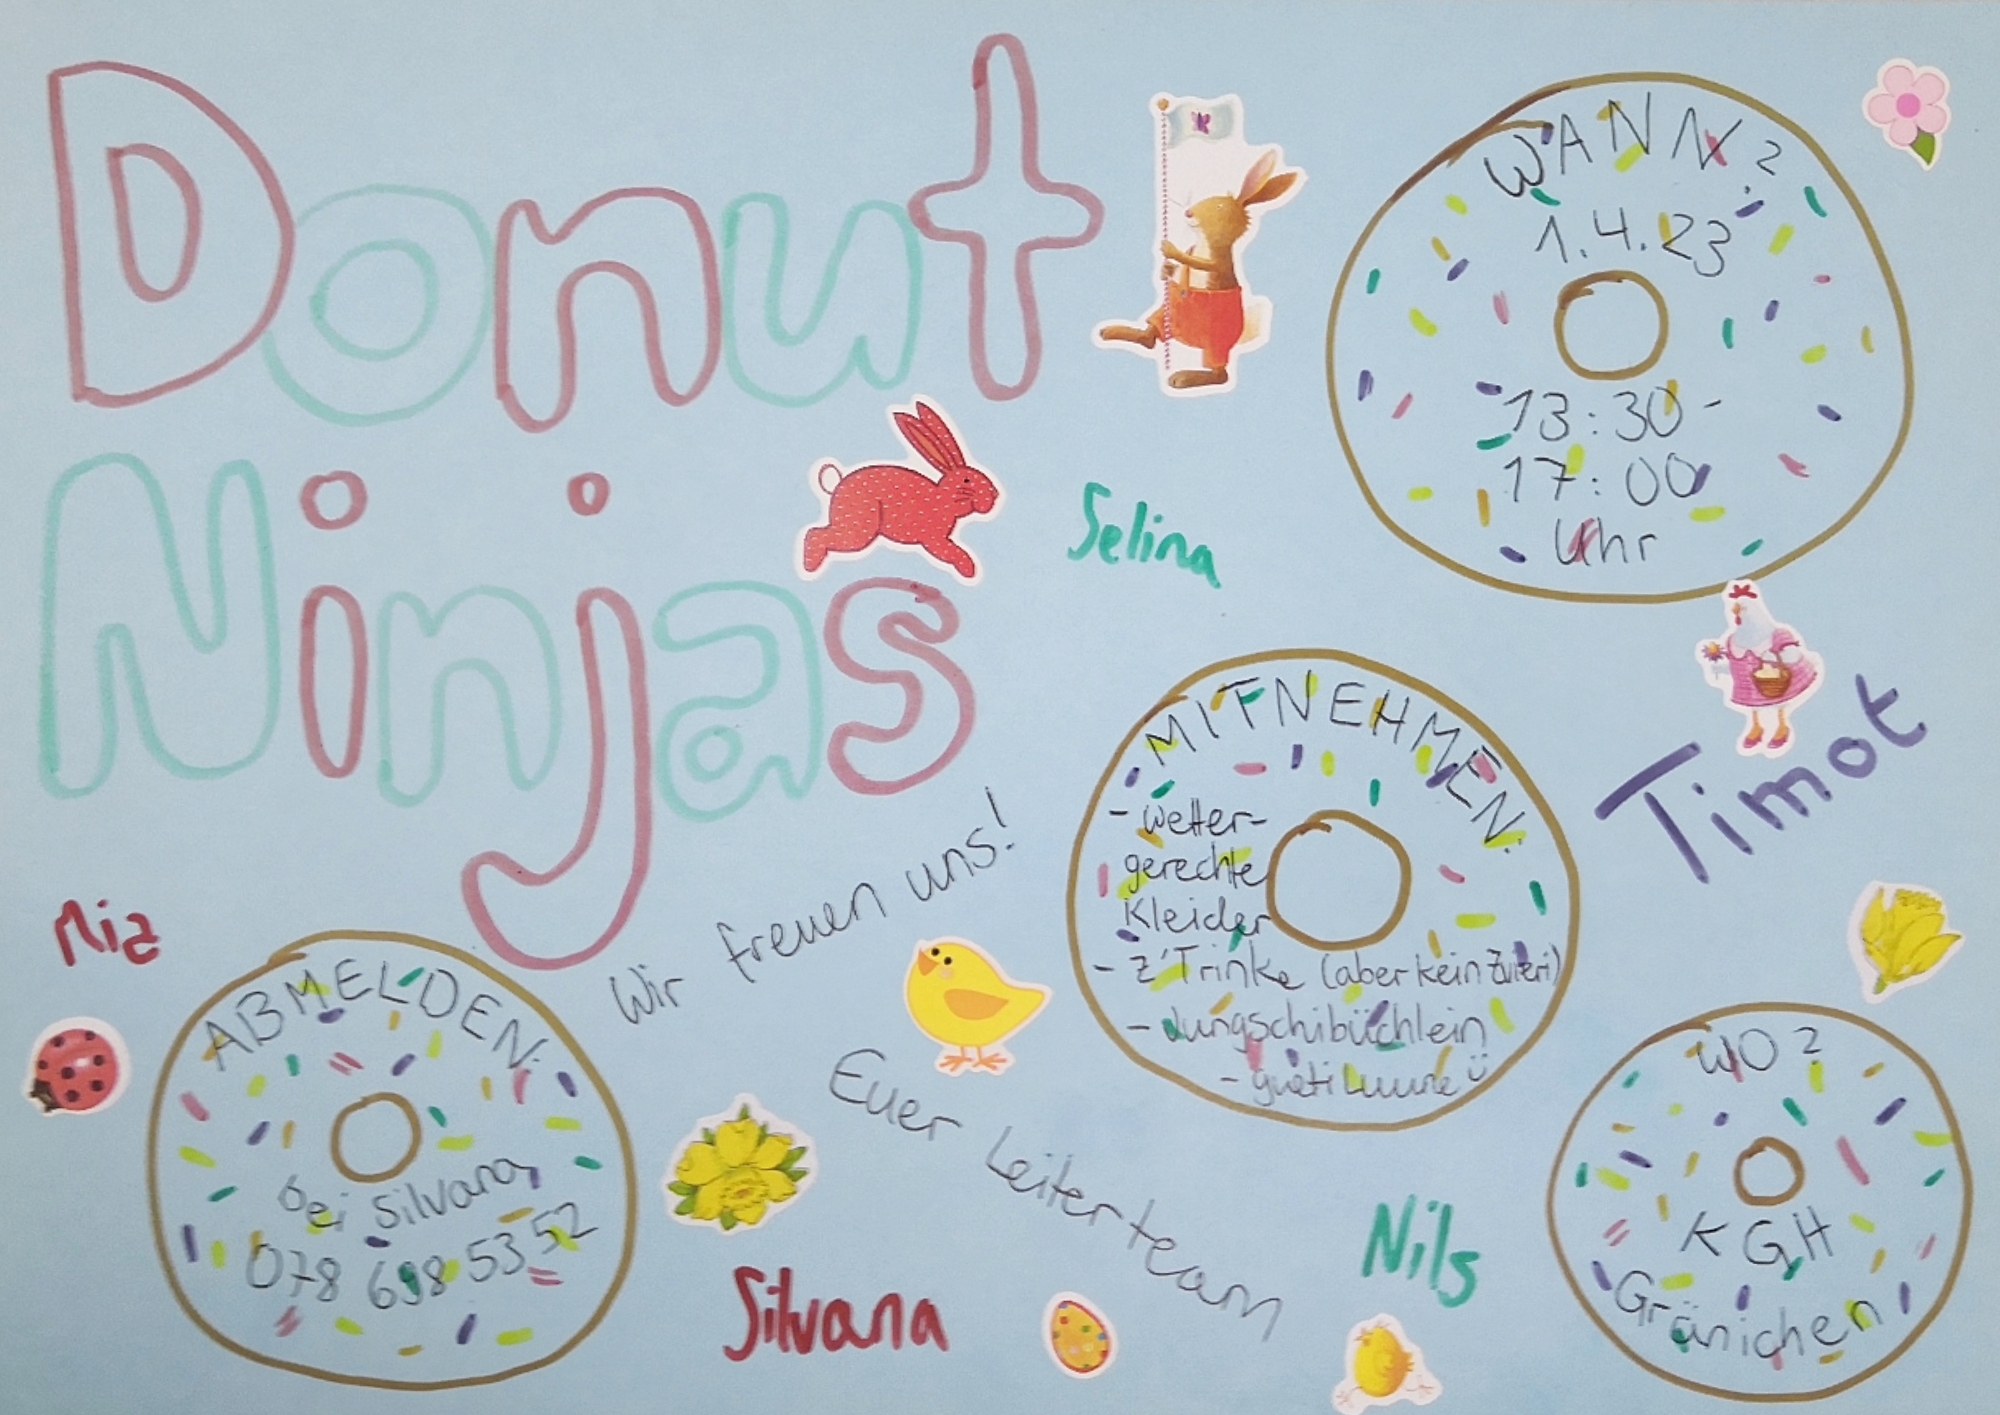 Donut
Ninjas
WANN?
1.4.23
13:30-
17:00
Uhr
Selina
MITNEHMEN:
- Wetter-
gerechte
Kleider
- Z'Trinke (aber kein Zvieri)
- Jungschibüchlein
- gueti Luune ü
Timot
Wir freuen uns!
Mia
ABMELDEN:
bei Silvana
078 698 53 52
Euer Leiterteam
Silvana
Nils
WO?
KGH
Gränichen